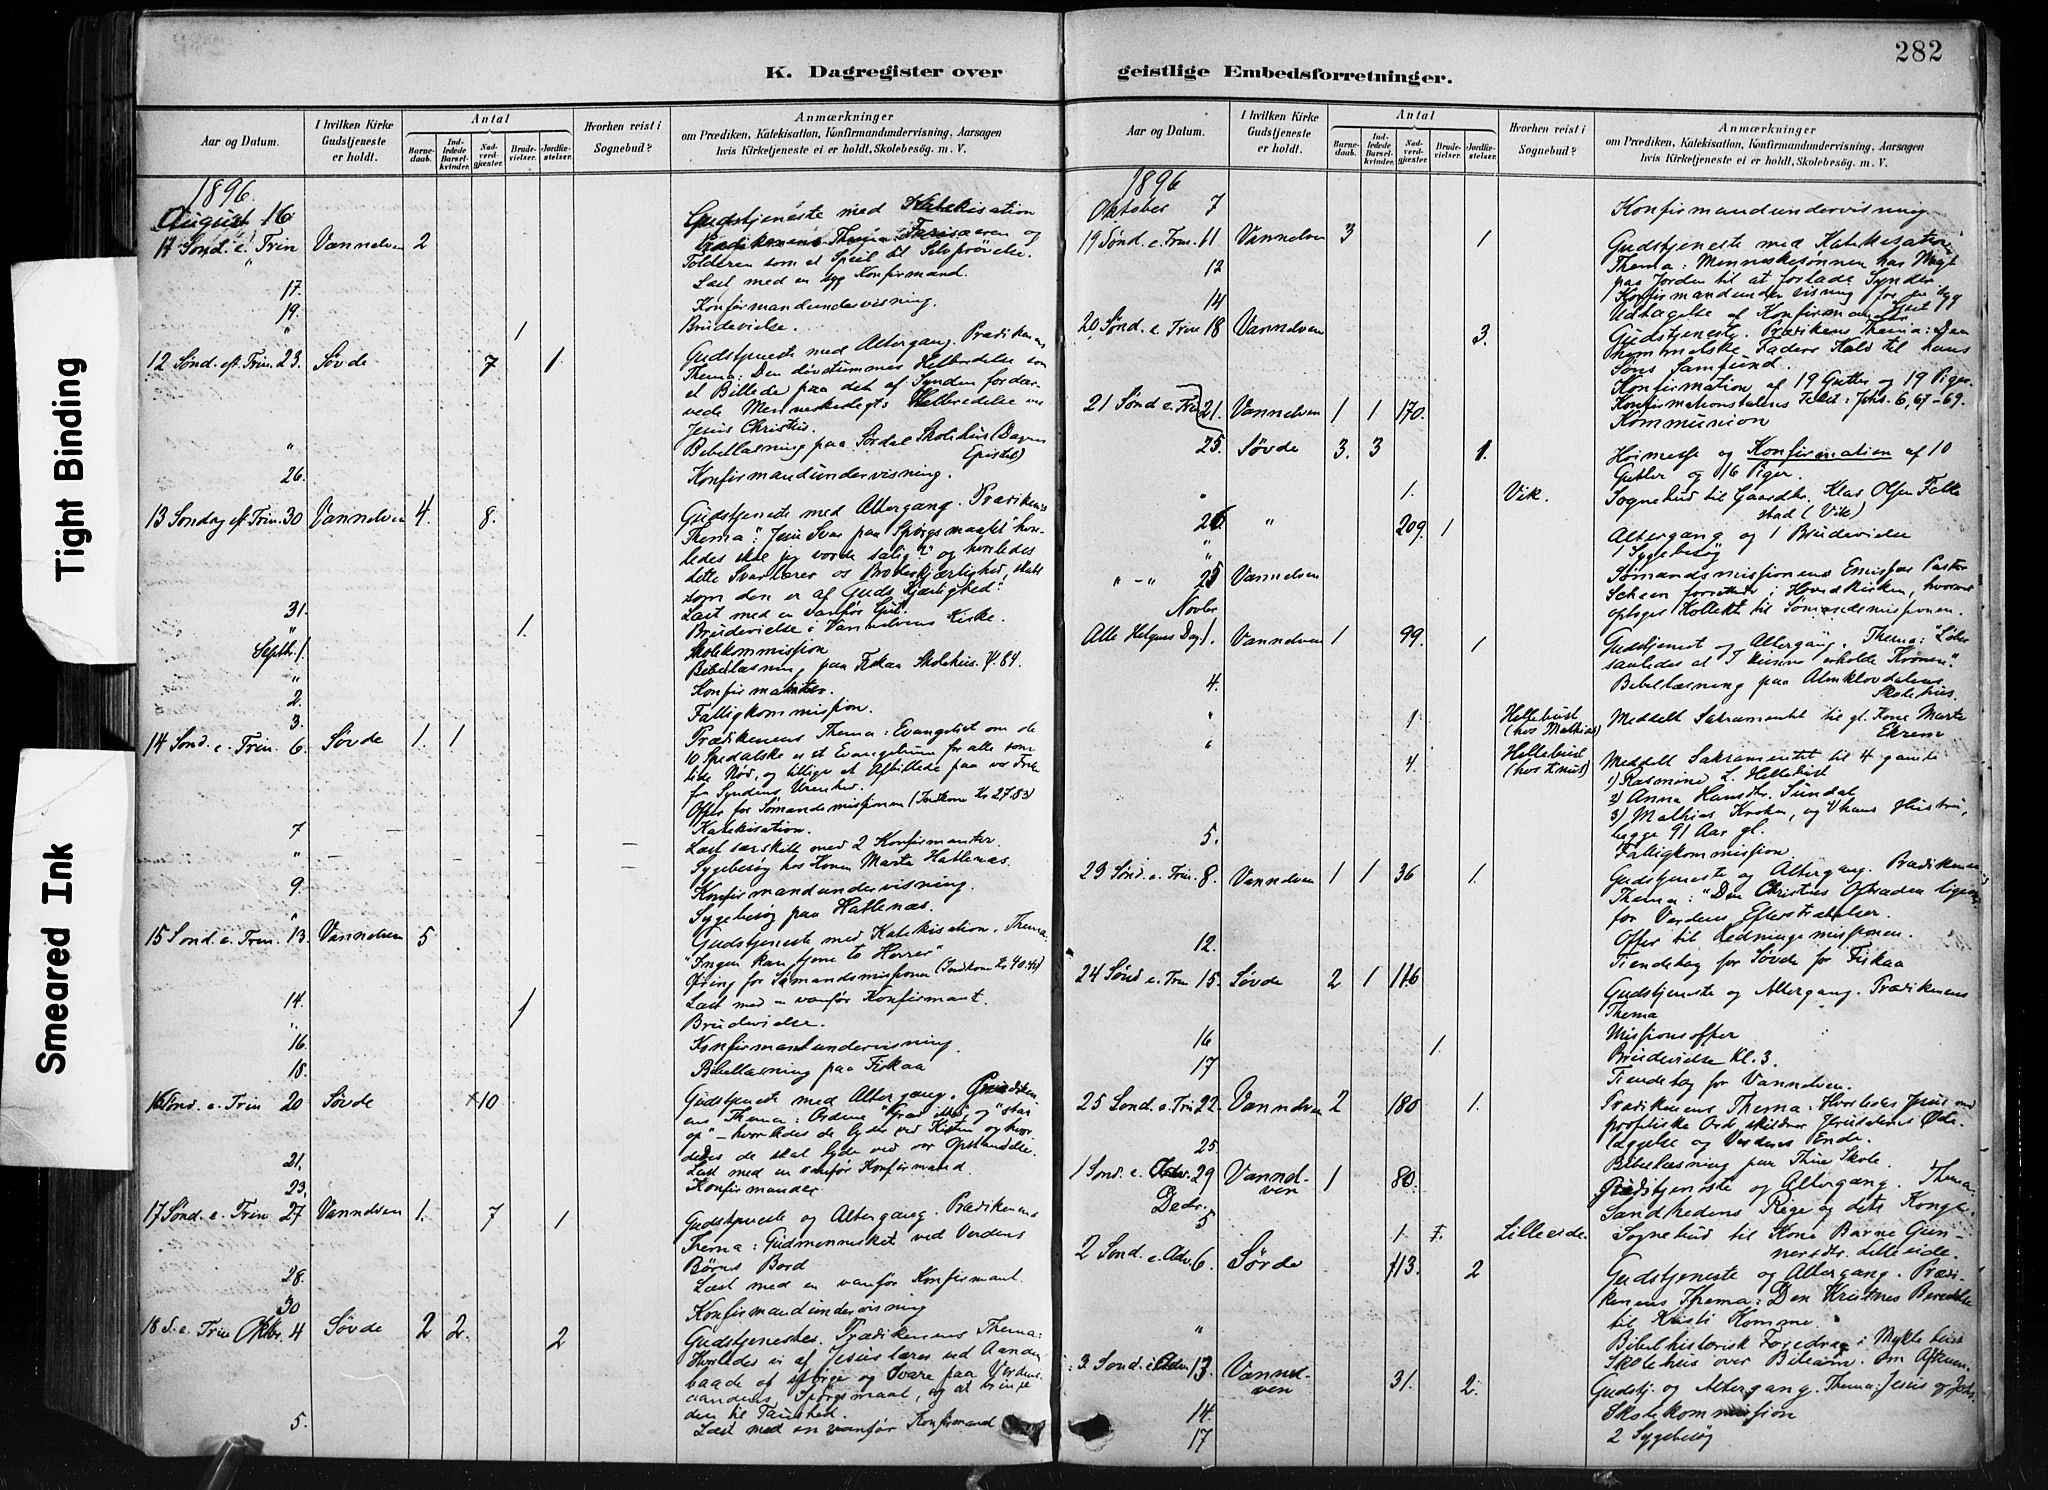 282
K. Dagregister over geistlige Embedsforretninger.
Tight Binding
Smeared Ink
Aar og Datum.
I hvilken Kirke Gudstjeneste er holdt.
Antal
Barnedaab.
Indledede Barselkvinder.
Nadverdgjæster.
Brudevielser.
Jordfæstelser.
Hvorhen reist i Sognebud?
Anmærkninger
om Prædiken, Katekisation, Konfirmandundervisning, Aarsagen
hvis Kirketjeneste ei er holdt, Skolebesög. m. V.
1896
August 16
11 Sønd. e. Trin Vannelven 2 Gudstjeneste med Katekisation
Prædikenens Thema: Farisæeren og
Tolderen som et Speil til Selvprøvelse.
" Læst med en syg Konfirmand.
17. Konfirmandundervisning.
19. 1 Brudevielse.
12 Sønd. eft. Trin. 23. Søvde 7 1. Gudstjeneste med Altergang. Prædikenens
Thema: Den døvstummes Helbredelse som
et Billede paa det af Synden fordær-
vede Menneskeslegts Helbredelse ved
Jesus Christus.
" Bibellæsning paa Sørdal Skolehus (Dagens
Epistel)
26. Konfirmandundervisning.
13 Søndag eft. Trin. 30 Vannelven 4. 8. Gudstjeneste med Altergang. Prædikens
Thema: "Jesu Svar paa Spørgsmaalet "hvor-
ledes skal jeg vorde salig?" og hvorledes
dette Svar lærer os Broderkjærlighed, skabt
som den er af Guds Kjærlighed!
31. Læst med en vanfør Gut.
" 1. Brudevielse i Vannelvens Kirke.
Septbr. 1. Skolekommission
" Bibellæsning paa Fiskaa Skolehus. Ψ. 84.
2. Konfirmanter.
3. Fattigkommission.
14 Sønd. e. Trin. 6. Søvde 1. 1 Prædikenens Thema: Evangeliet om de
10 Spedalske et Evangelium for alle som
lide Nød, og tillige et Afbillede paa vor Frelse
for Syndens Urenhed.
Offer for Sømandsmissionen (Indkom Kr 27.83)
Katekisation.
7 Læst særskilt med 2 Konfirmanter.
" Sygebesøg hos Konen Marte Hatlenæs.
9. Konfirmandundervisning.
" Sygebesøg paa Hatlenæs.
15 Sønd. e. Trin. 13. Vannelven 5 Gudstjeneste med Katekisation. Thema
"Ingen kan tjene to Herrer"
Ofring for Sømandsmissionen (Indkom Kr 40.41)
14. Læst med en vanfør Konfirmant.
" 1 Brudevielse.
16. Konfirmantundervisning.
18. Bibellæsning paa Fiskaa
16 Sønd. e. Trin 20 Søvde 10 Gudstjeneste med Altergang. Prædiken-
ens Thema: Ordene "Græd ikke" og "staa
op" – hvorledes de lyde ved Kisten og hvor-
ledes de skal lyde ved vor Opstandelse.
21. Læst med en vanfør Konfirmand.
23. Konfirmander
17 Sønd. e. Trin 27 Vannelven 1. 7 1 Gudstjeneste og Altergang. Prædikenens
Thema: Gudmennesket ved Verdens
Børns Bord
28. Læst med en vanfør Konfirmant.
30 Konfirmandundervisning
18 S. e. Trin Oktbr. 4 Søvde 2 2. 2 Gudstjenestes. Prædikenens Thema:
Hvorledes vi af Jesus læres ved Aanden
baade at spørge og svare paa Verdens-
aandens Spørgsmaal, og at bringe
den til Taushed.
5. Læst med en vanfør Konfirmand
Aar og Datum.
I hvilken Kirke Gudstjeneste er holdt.
Antal
Barnedaab.
Indledede Barselkvinder.
Nadverdgjæster.
Brudevielser.
Jordfæstelser.
Hvorhen reist i Sognebud?
Anmærkninger
om Prædiken, Katekisation, Konfirmandundervisning, Aarsagen
hvis Kirketjeneste ei er holdt, Skolebesög. m. V.
1896
Oktober 7 Konfirmandundervisning
19 Sønd. e. Trin. 11 Vannelven 3 1 Gudstjeneste med Katekisation
Thema: Menneskesønnen har Magt
paa Jorden til at forlade Synder
12 Konfirmandundervisning for en syg
Gut
14 Udtagelse af Konfirmander
20 Sønd. e. Trin 18 Vannelven 3. Gudstjeneste. Prædikens Thema: Den
himmelske Faders Kald til hans
Søns Samfund.
21 Sønd e. Trin 21. Vannelven 1 1 170. Konfirmation af 19 Gutter og 19 Piger.
Konfirmationstalens Text: Johs. 6, 67-69.
Kommunion
25. Søvde 3. 3 1. Høimesse og Konfirmation af 10
Gutter og 16 Piger.
" 1. Vik. Sognebud til Gaardbr. Klas Olsen Fille
stad (Vik)
26. " 209. 1 Altergang og 1 Brudevielse
" 1 Sygebesøg
" - " 25 Vannelven Sømandsmissionens Emissær Pastor
forretter i Hovedkirken, hvorav
optoges Kollekt til Sømandsmissionen.
Novbr
Alle Helgens Dag 1. Vannelven 1 99 1 Gudstjenest og Altergang. Thema: "Løber
saaledes at I kunne erholde Kronen."
4. Bibellæsning paa Almklovdalens
Skolehus.
" 1 Hellebust (hos Mathias) Meddelt Sakramentet til gl. Kone Marte
Ekrem
" 4. Hellebust (hos Knut) Meddelt Sakramentet til 4 gamle
1) Rasmine L. Hellebust
2) Anna Hansdtr. Sundal
3) Mathias Kroken, og 4) hans Hustru,
begge 91 Aar gl.
5. Fattigkommission.
23 Sønd. e. Trin. 8. Vannelven 1 1 36 1. Gudstjeneste og Altergang. Prædikenens
Thema: "Den Christnes Optræden ligeover
for Verdens Efterstræbelser.
Offer til Redningsmissionen.
12. Tiendetag for Søvde for Fiskaa
24 Sønd e. Trin 15. Søvde 2 1 116 Gudstjeneste og Altergang. Prædikenens
Thema
Missionsoffer
16 1. Brudevielse Kl. 3.
17 Tiendetag for Vannelven.
25 Sønd. e. Trin 22. Vannelven 2 180 1. Prædikenens Thema: Hvorledes Jesus med
profetiske Ord skildrer Jerusalems Øde-
læggelse og Verdens Ende.
25. Bibellæsning paa Thue Skole.
1 Sønd. e. Adv. 29 Vannel-
ven 1 80. Gudstjeneste og Altergang. Thema
Sandhedens Rige og dets Konge.
Decbr.
5 1. Lilleeide. Sognebud til Kone Barne Gun-
nersdtr. Lilleeide.
2 Sønd. e. Adv. 6. Sørde 113. 2 Gudstjeneste og Altergang. Prædi-
kenens Thema: Den Kristnes Beredelse
til Kristi Komme.
" Bibelhistorisk Foredrag i Myklebust
Skolehus over Bileam. Om Aftenen.
3 Sønd. i Adv. 13. Vannel-
ven 31. 2. Gudstj. og Altergang. Thema: Jesus og Johs.
14. Skolekommission
17 2 Sygebesøg